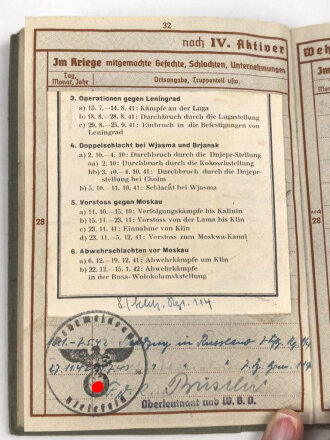 32
nach IV. Aktiver
Im Kriege mitgemachte Gefechte, Schlachten, Unternehmungen
Tag, Monat, Jahr
Ortsangabe, Truppenteil usw.
3. Operationen gegen Leningrad
a) 13. 7.—14. 8. 41: Kämpfe an der Luga
b) 18. 8.—28. 8. 41: Durchbruch durch die Lugastellung
c) 29. 8.—25. 9. 41: Einbruch in die Befestigungen von
Leningrad
4. Doppelschlacht bei Wjasma und Brjansk
a) 2. 10.—4. 10: Durchbruch durch die Dnjepr-Stellung
aa) 2. 10: Durchbruch durch die Kokoschstellung
bb) 3. 10.—4. 10. 41: Durchbruch durch die Dnjepr-
stellung bei Cholm
b) 5. 10.—11. 10. 41: Schlacht bei Wjasma
5. Vorstoss gegen Moskau
a) 11. 10.—15. 10: Verfolgungskämpfe bis Kalinin
b) 15. 11.—23. 11: Vorstoss von der Lama bis Klin
c) 23. 11. 41: Einnahme von Klin
d) 23. 11.—5. 12. 41: Vorstoss zum Moskwa-Kanal
6. Abwehrschlachten vor Moskau
a) 6. 12.—19. 12. 41: Abwehrkämpfe um Klin
b) 22. 12.—15. 1. 42: Abwehrkämpfe
in der Rusa-Wolokolamskstellung
28
28
Feldzug in Russland
Bielefeld
Oberleutnant und W.B.O.
Weh